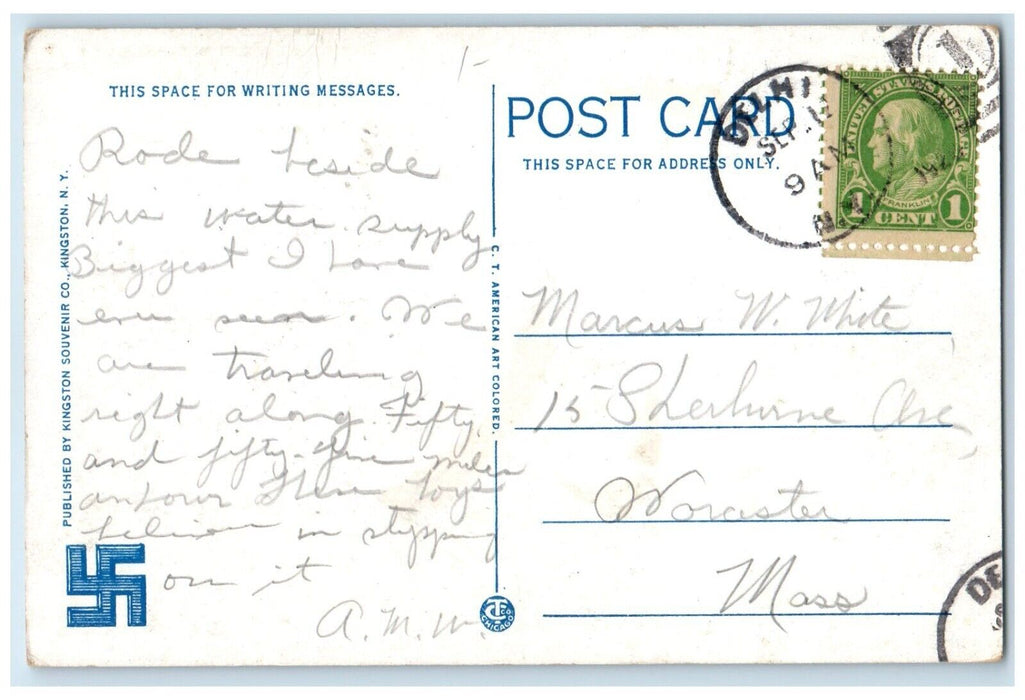 THIS SPACE FOR WRITING MESSAGES.
Rode beside
this water supply
Biggest I have
ever seen. We
are traveling
right along. Fifty
and fifty-five miles
an hour these boys
believe in stepping
on it
A. M. W.
PUBLISHED BY KINGSTON SOUVENIR CO., KINGSTON, N. Y.
C. T. AMERICAN ART COLORED.
CT CO
CHICAGO
1-
POST CARD
THIS SPACE FOR ADDRESS ONLY.
DELHI
SEP
9 AM
N.Y.
UNITED STATES POSTAGE
FRANKLIN
1 CENT 1
Marcus W. White
15 Sherburne Ave,
Worcester
Mass
DE